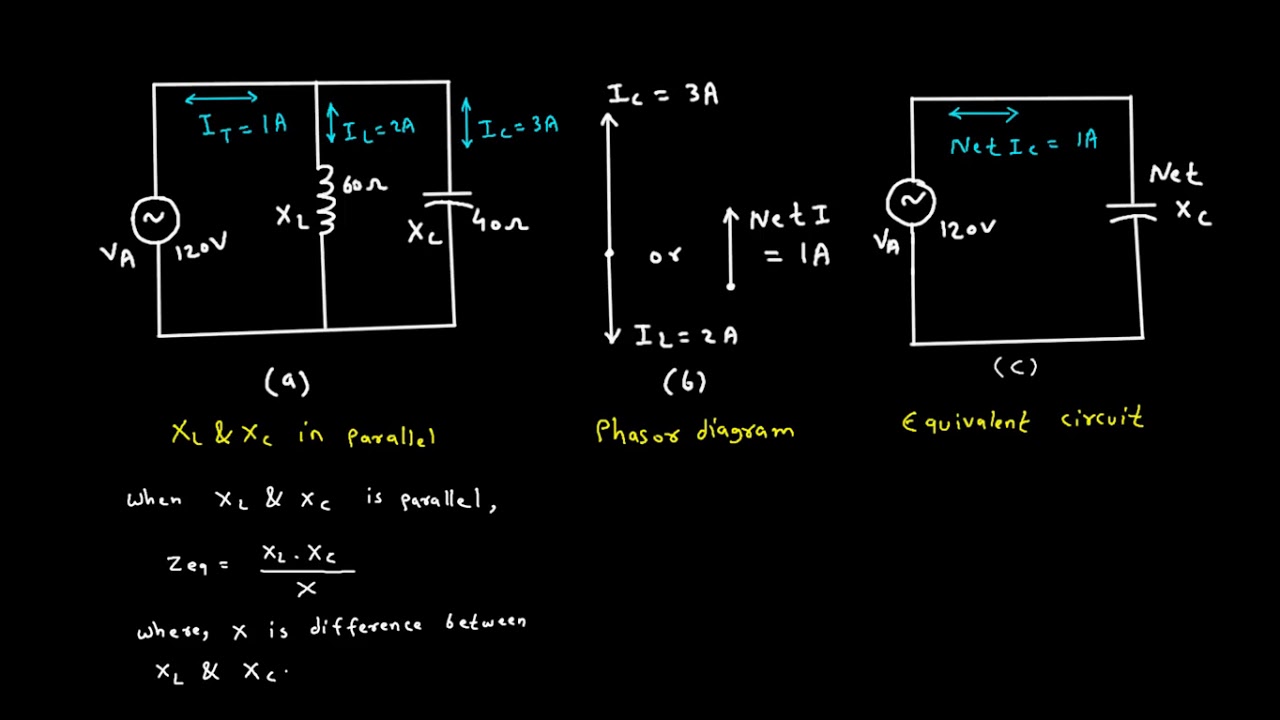 I_T = 1A
I_L = 2A
I_C = 3A
60Ω
X_L
X_C
40Ω
V_A
120V
(a)
X_L & X_C in parallel
I_C = 3A
or
Net I
= 1A
I_L = 2A
(b)
Phasor diagram
Net I_C = 1A
Net
X_C
V_A
120V
(c)
Equivalent circuit
when X_L & X_C is parallel,
Zeq = X_L . X_C
X
where, X is difference between
X_L & X_C.